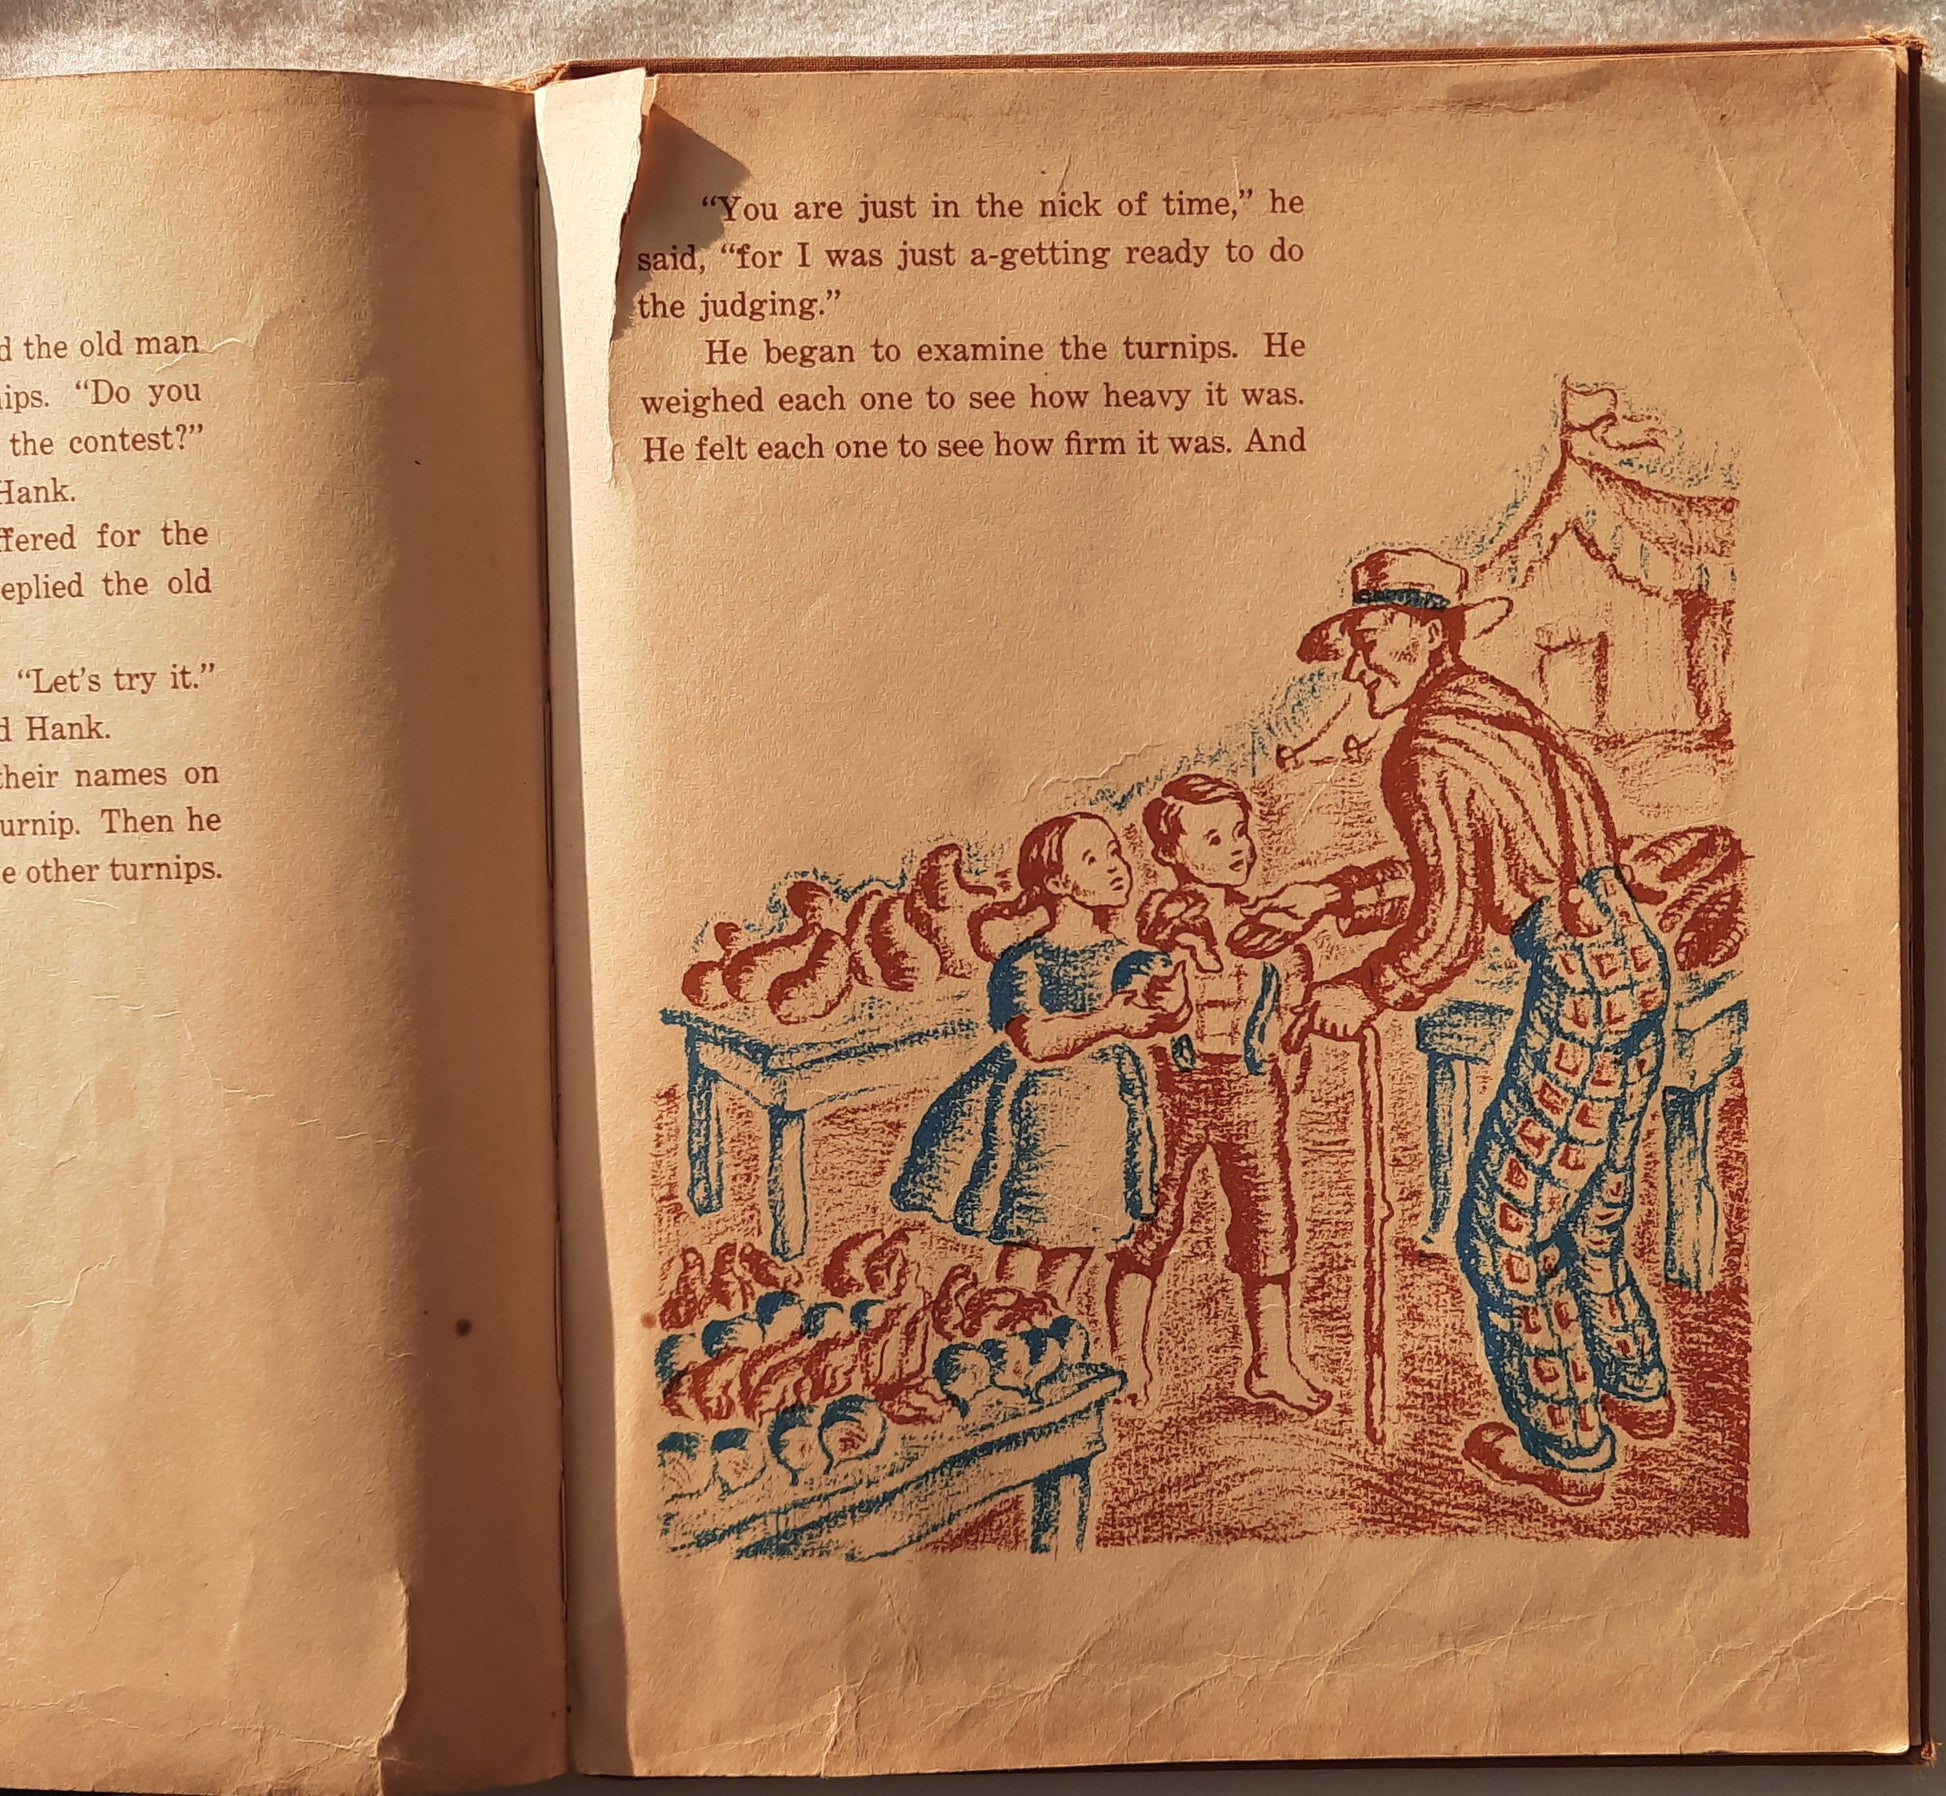 the old man
"Do you
the contest?"
Hank.
for the
the old
"Let's try it."
Hank.
their names on
Then he
other turnips.
"You are just in the nick of time," he
said, "for I was just a-getting ready to do
the judging."
He began to examine the turnips. He
weighed each one to see how heavy it was.
He felt each one to see how firm it was. And